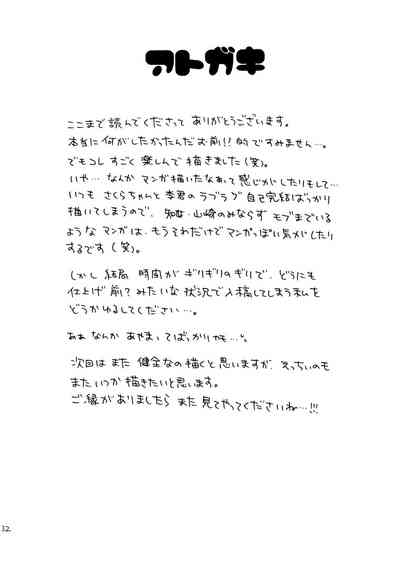 アトガキ
ここまで読んでくださって ありがとうございます。
本当に何がしたかったんだお前!! 的ですみません…。
でもコレ すごく楽しんで描きました(笑)。
いや… なんか マンガ描いたなあって感じがしたりもして…
いつも さくらちゃんと 李君のラブラブ自己完結ばっかり
描いてしまうので、知世・山崎のみならず モブまでいる
ような マンガは、もうそれだけで マンガっぽい気がしたり
するです(笑)。
しかし 結局 時間が ギリギリのギリで、どうにも
仕上げ前?みたいな 状況で入稿してしまう私を
どうかゆるしてください…。
あぁ なんか あやまってばっかりかも…。
次回は また 健全なの描くと思いますが、えっちいのも
またいつか 描きたいと思います。
ご縁がありましたら また 見てやってくださいね…!!!
32